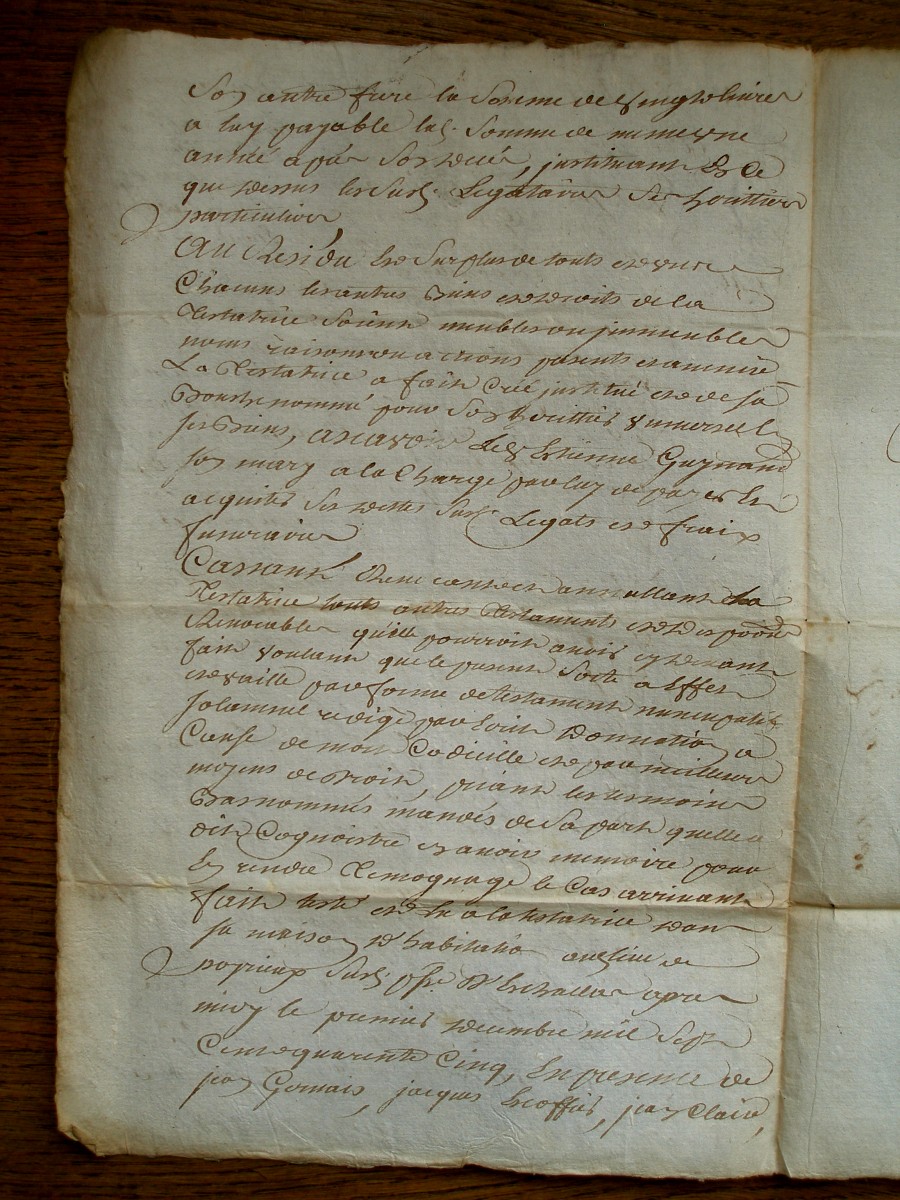 Son autre frere la Somme de vingt livres
a luy payable lad. Somme de meme une
année apés Son decés, instituant En Ce
que dessus les Susd. Legataires Ses heritiers
particuliers
Au Residu et Surplus de touts et uns
Chacuns les autres Biens et droits de la
Testatrice Soient meubles ou jmmeubles
noms raisons ou actions presents et avenir
La Testatrice a fait Créé jnstitué et de Sa
Bouche nommé pour Son heritier universel
Ses Biens, ascavoir Led. Estienne Guynand
Son mary a la Charge par luy de payer et
acquiter Ses dettes Susd. Legats et fraix
funeraires
Cassant Revocant et annullant la
Testatrice touts autres Testaments et dispoõns
Revocables qu'elle pourroit avoir cy devant
fait voulant que le present Sorte a Effet
et vaille par forme de testament nuncupatif
Solamnel redigé par Ecrit Donnation a
Cause de mort Codicille et par meilleurs
moyens de Droit, priant les temoins
Bas nommés mandés de Sa part quelle a
dit Cognoistre en avoir memoire pour
En rendre Temognage le Cas arrivant
fait testé et lu a la testatrice dans
Sa maison D'habitatiõ au lieu de
poprieux Susd. psse. D'Echallas apres
midy le premier decembre mil Sept
Cents quarente Cinq, En presence de
jean Gervais, jacques Escoffier, jean Claire,